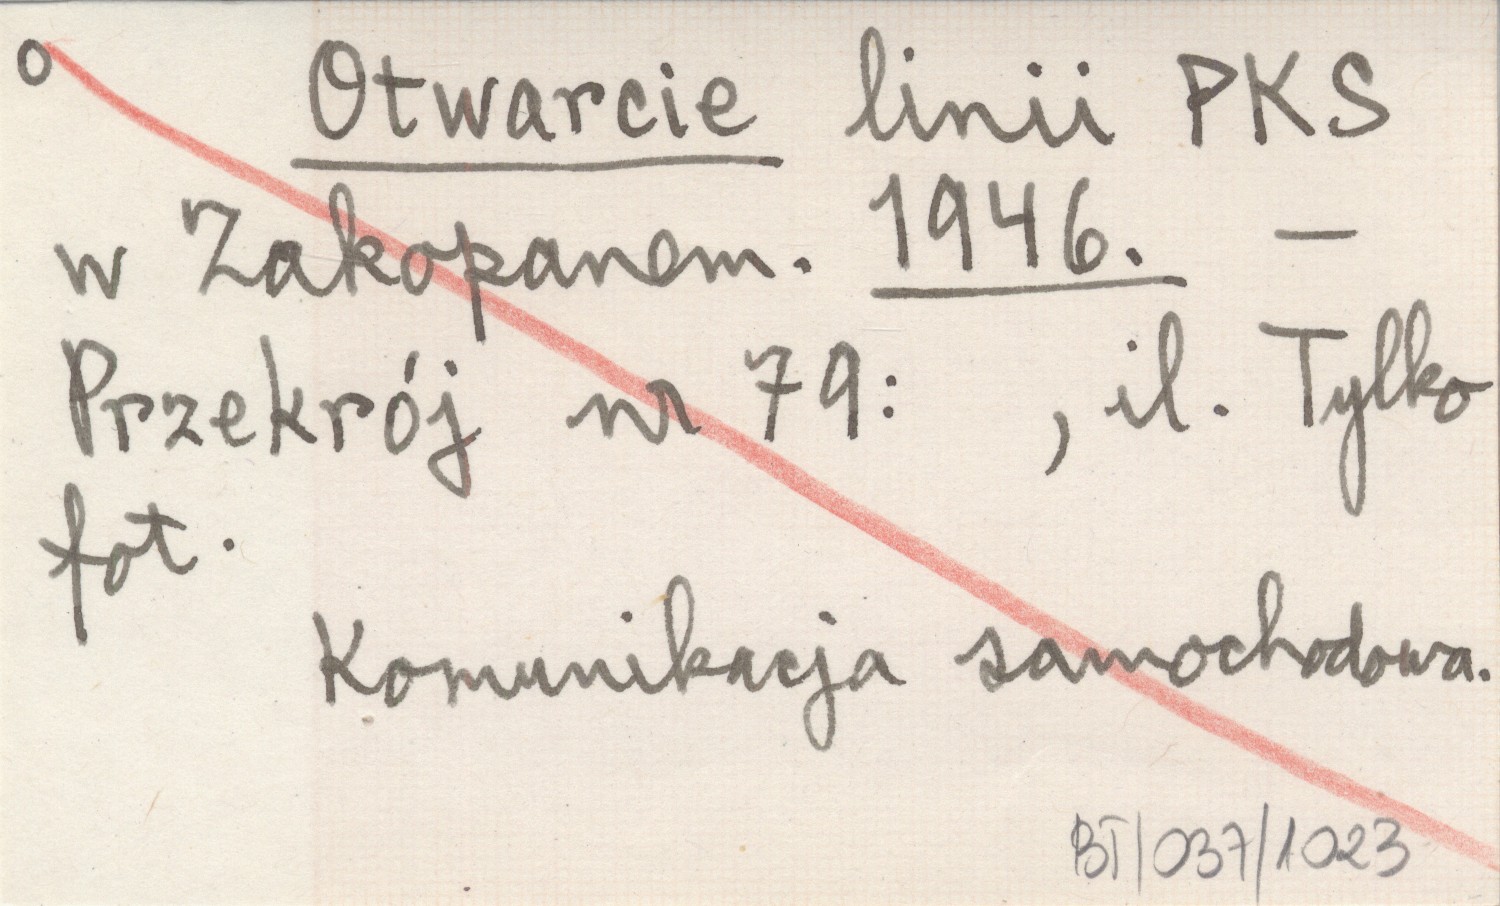 o Otwarcie linii PKS
w Zakopanem. 1946. —
Przekrój nr 79: , il. Tylko
fot.
Komunikacja samochodowa.
BT/037/1023